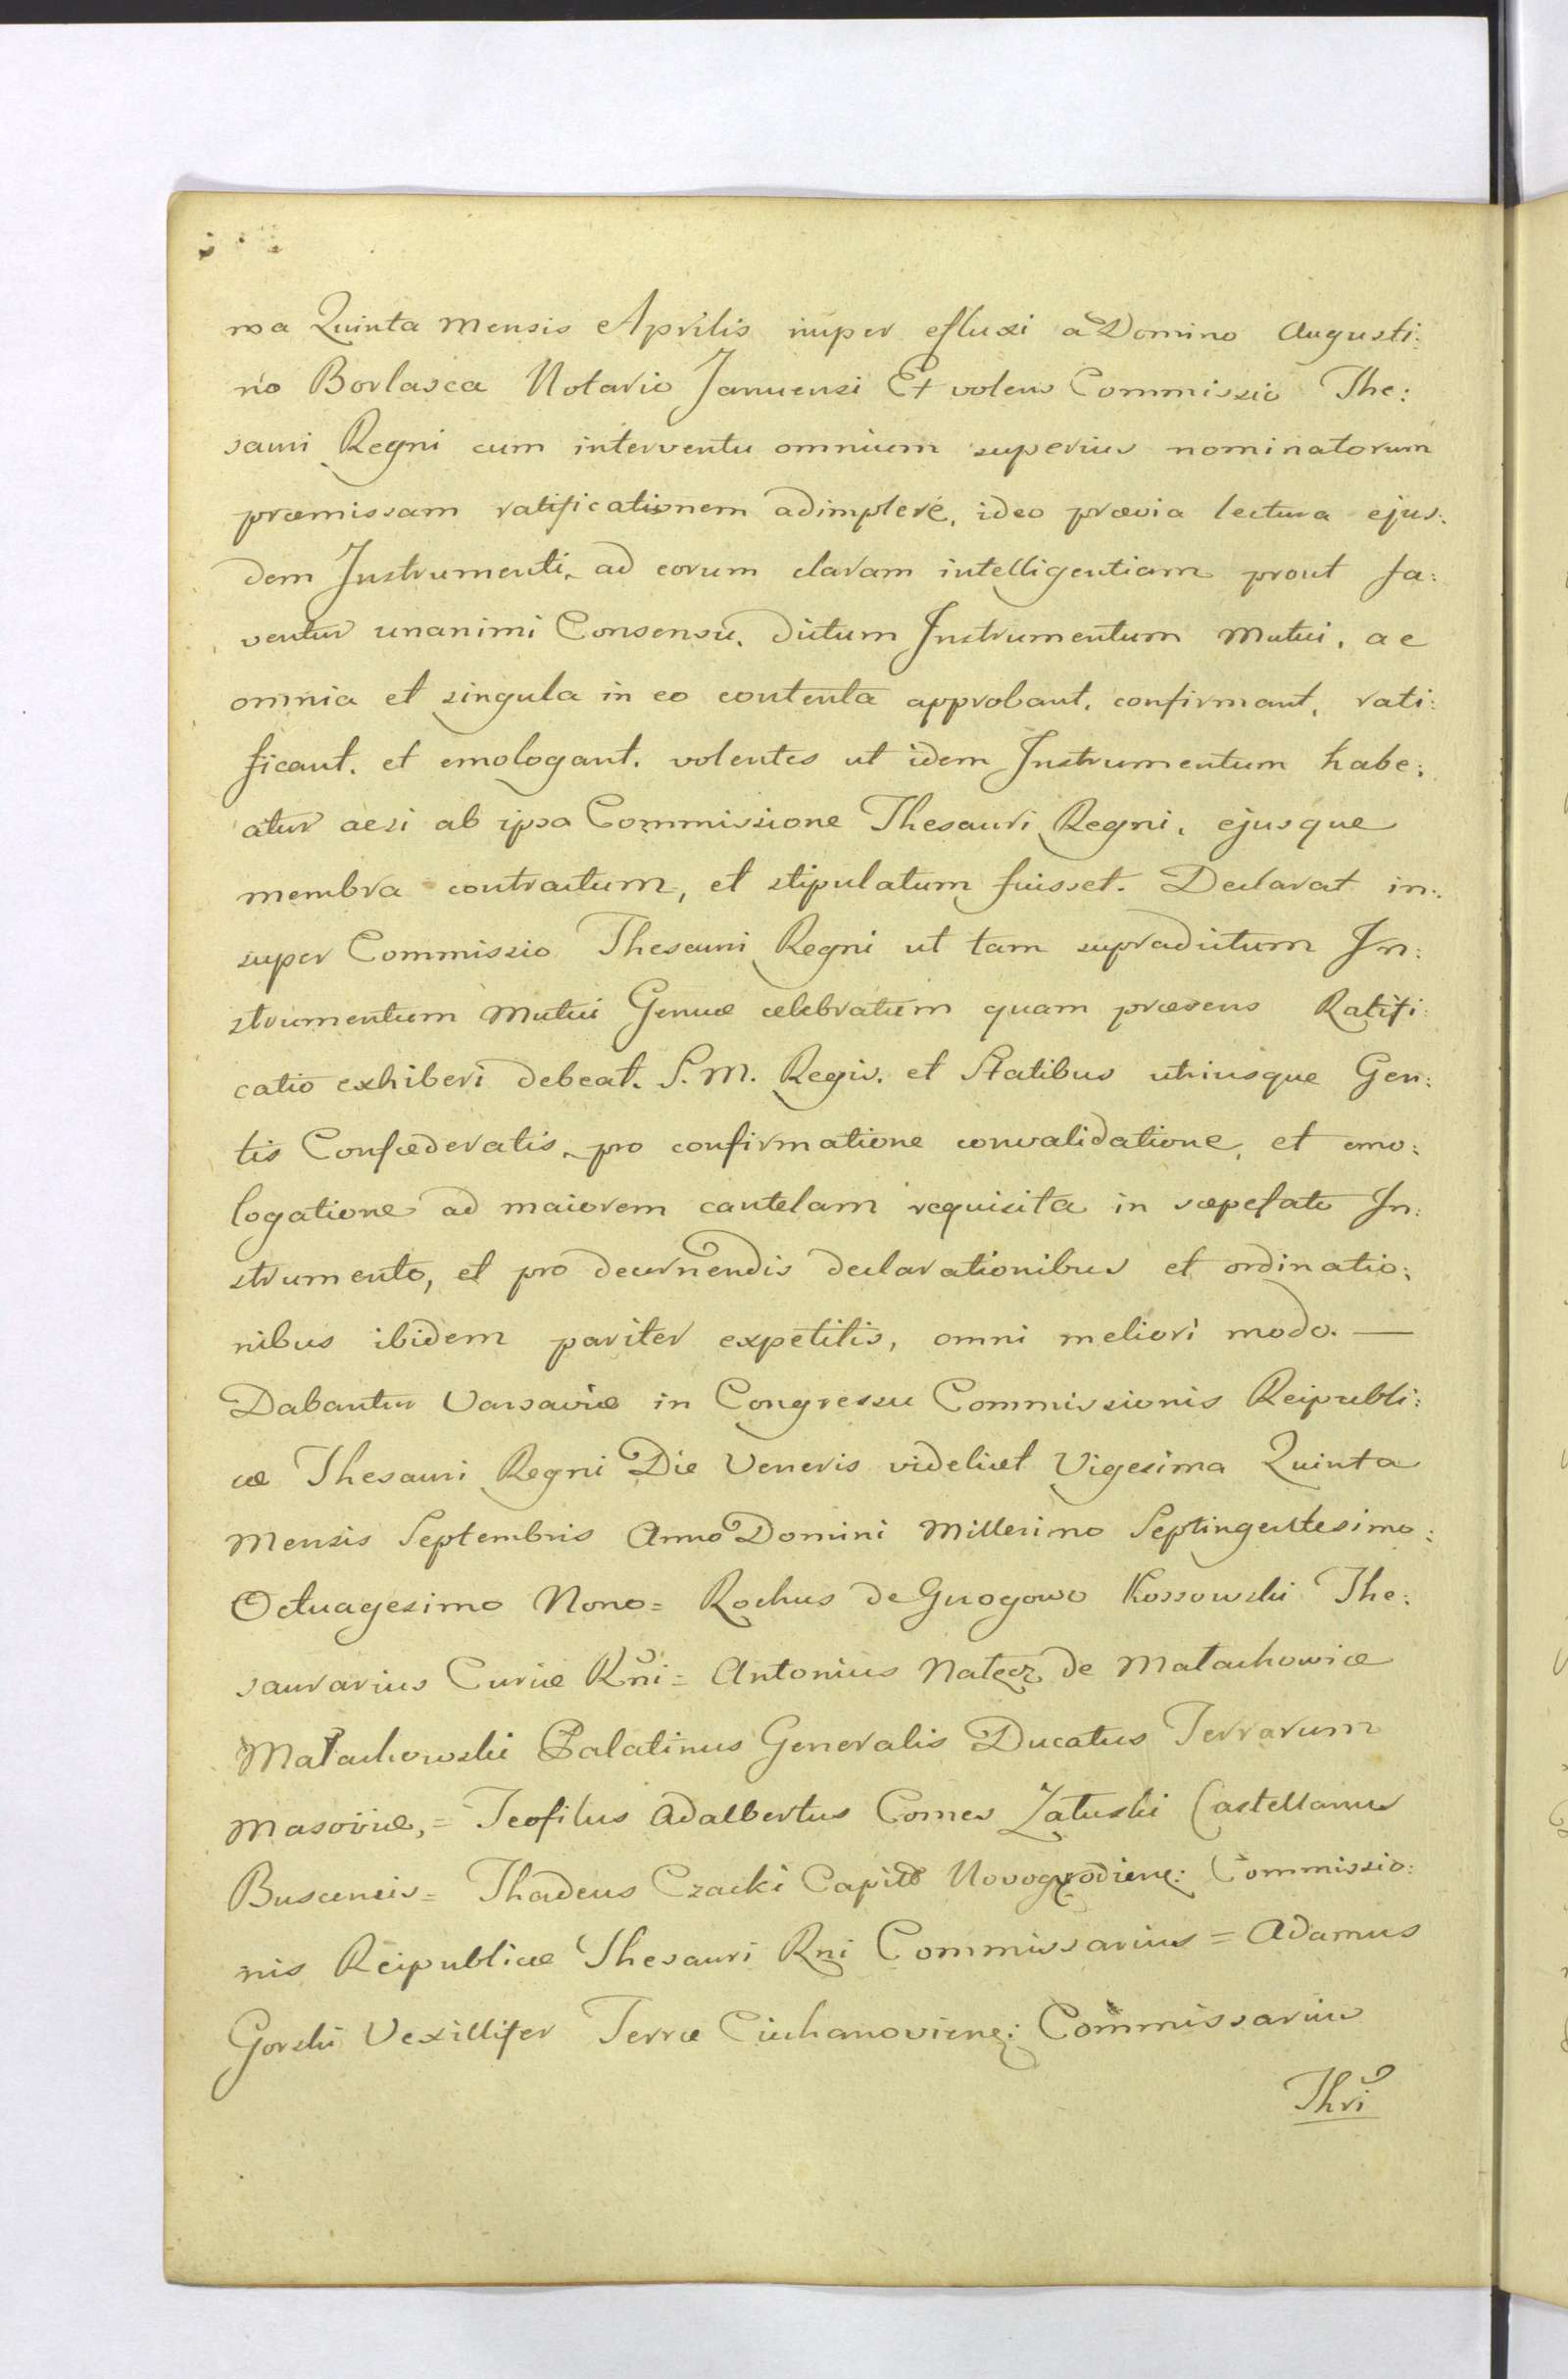 ma Quinta Mensis Aprilis nuper efluxi a Domino Augusti:
no Borlasca Notario Januensi Et volens Commissio The:
sauri Regni cum interventu omnium superius nominatorum
præmissam ratificationem adimplere, ideo prævia lectura ejus:
dem Instrumenti, ad eorum claram intelligentiam prout fa:
ventur unanimi Consensu, dictum Instrumentum Mutui, ac
omnia et singula in eo contenta approbant, confirmant, rati:
ficant, et emologant, volentes ut idem Instrumentum habe:
atur acsi ab ipsa Commissione Thesauri Regni, ejusque
membra contractum, et stipulatum fuisset. Declarat in:
super Commissio Thesauri Regni ut tam supradictum In:
strumentum Mutui Genuæ celebratum quam præsens Ratifi:
catio exhiberi debeat S. M. Regis, et Statibus utriusque Gen:
tis Confœderatis, pro confirmatione convalidatione, et emo:
logatione ad maiorem cautelam requisita in sæpefato In:
strumento, et pro decernendis declarationibus et ordinatio:
nibus ibidem pariter expetitis, omni meliori modo. —
Dabantur Varsaviæ in Congressu Commissionis Reipubli:
cæ Thesauri Regni Die Veneris videlicet Vigesima Quinta
Mensis Septembris Anno Domini Millesimo Septingentesimo:
Octuagesimo Nono = Rochus de Guogowo Kossowski The:
saurarius Curiæ Rñi = Antonius Nałęcz de Małachowice
Małachowski Palatinus Generalis Ducatus Terrarum
Masoviæ, = Teofilus Adalbertus Comes Załuski Castellanus
Buscensis = Thadeus Czacki Capito Novogrodiens: Commissio:
nis Reipublicæ Thesauri Rni Commissarius = Adamus
Gorski Vexillifer Terræ Ciechanoviens: Commissarius
Thri